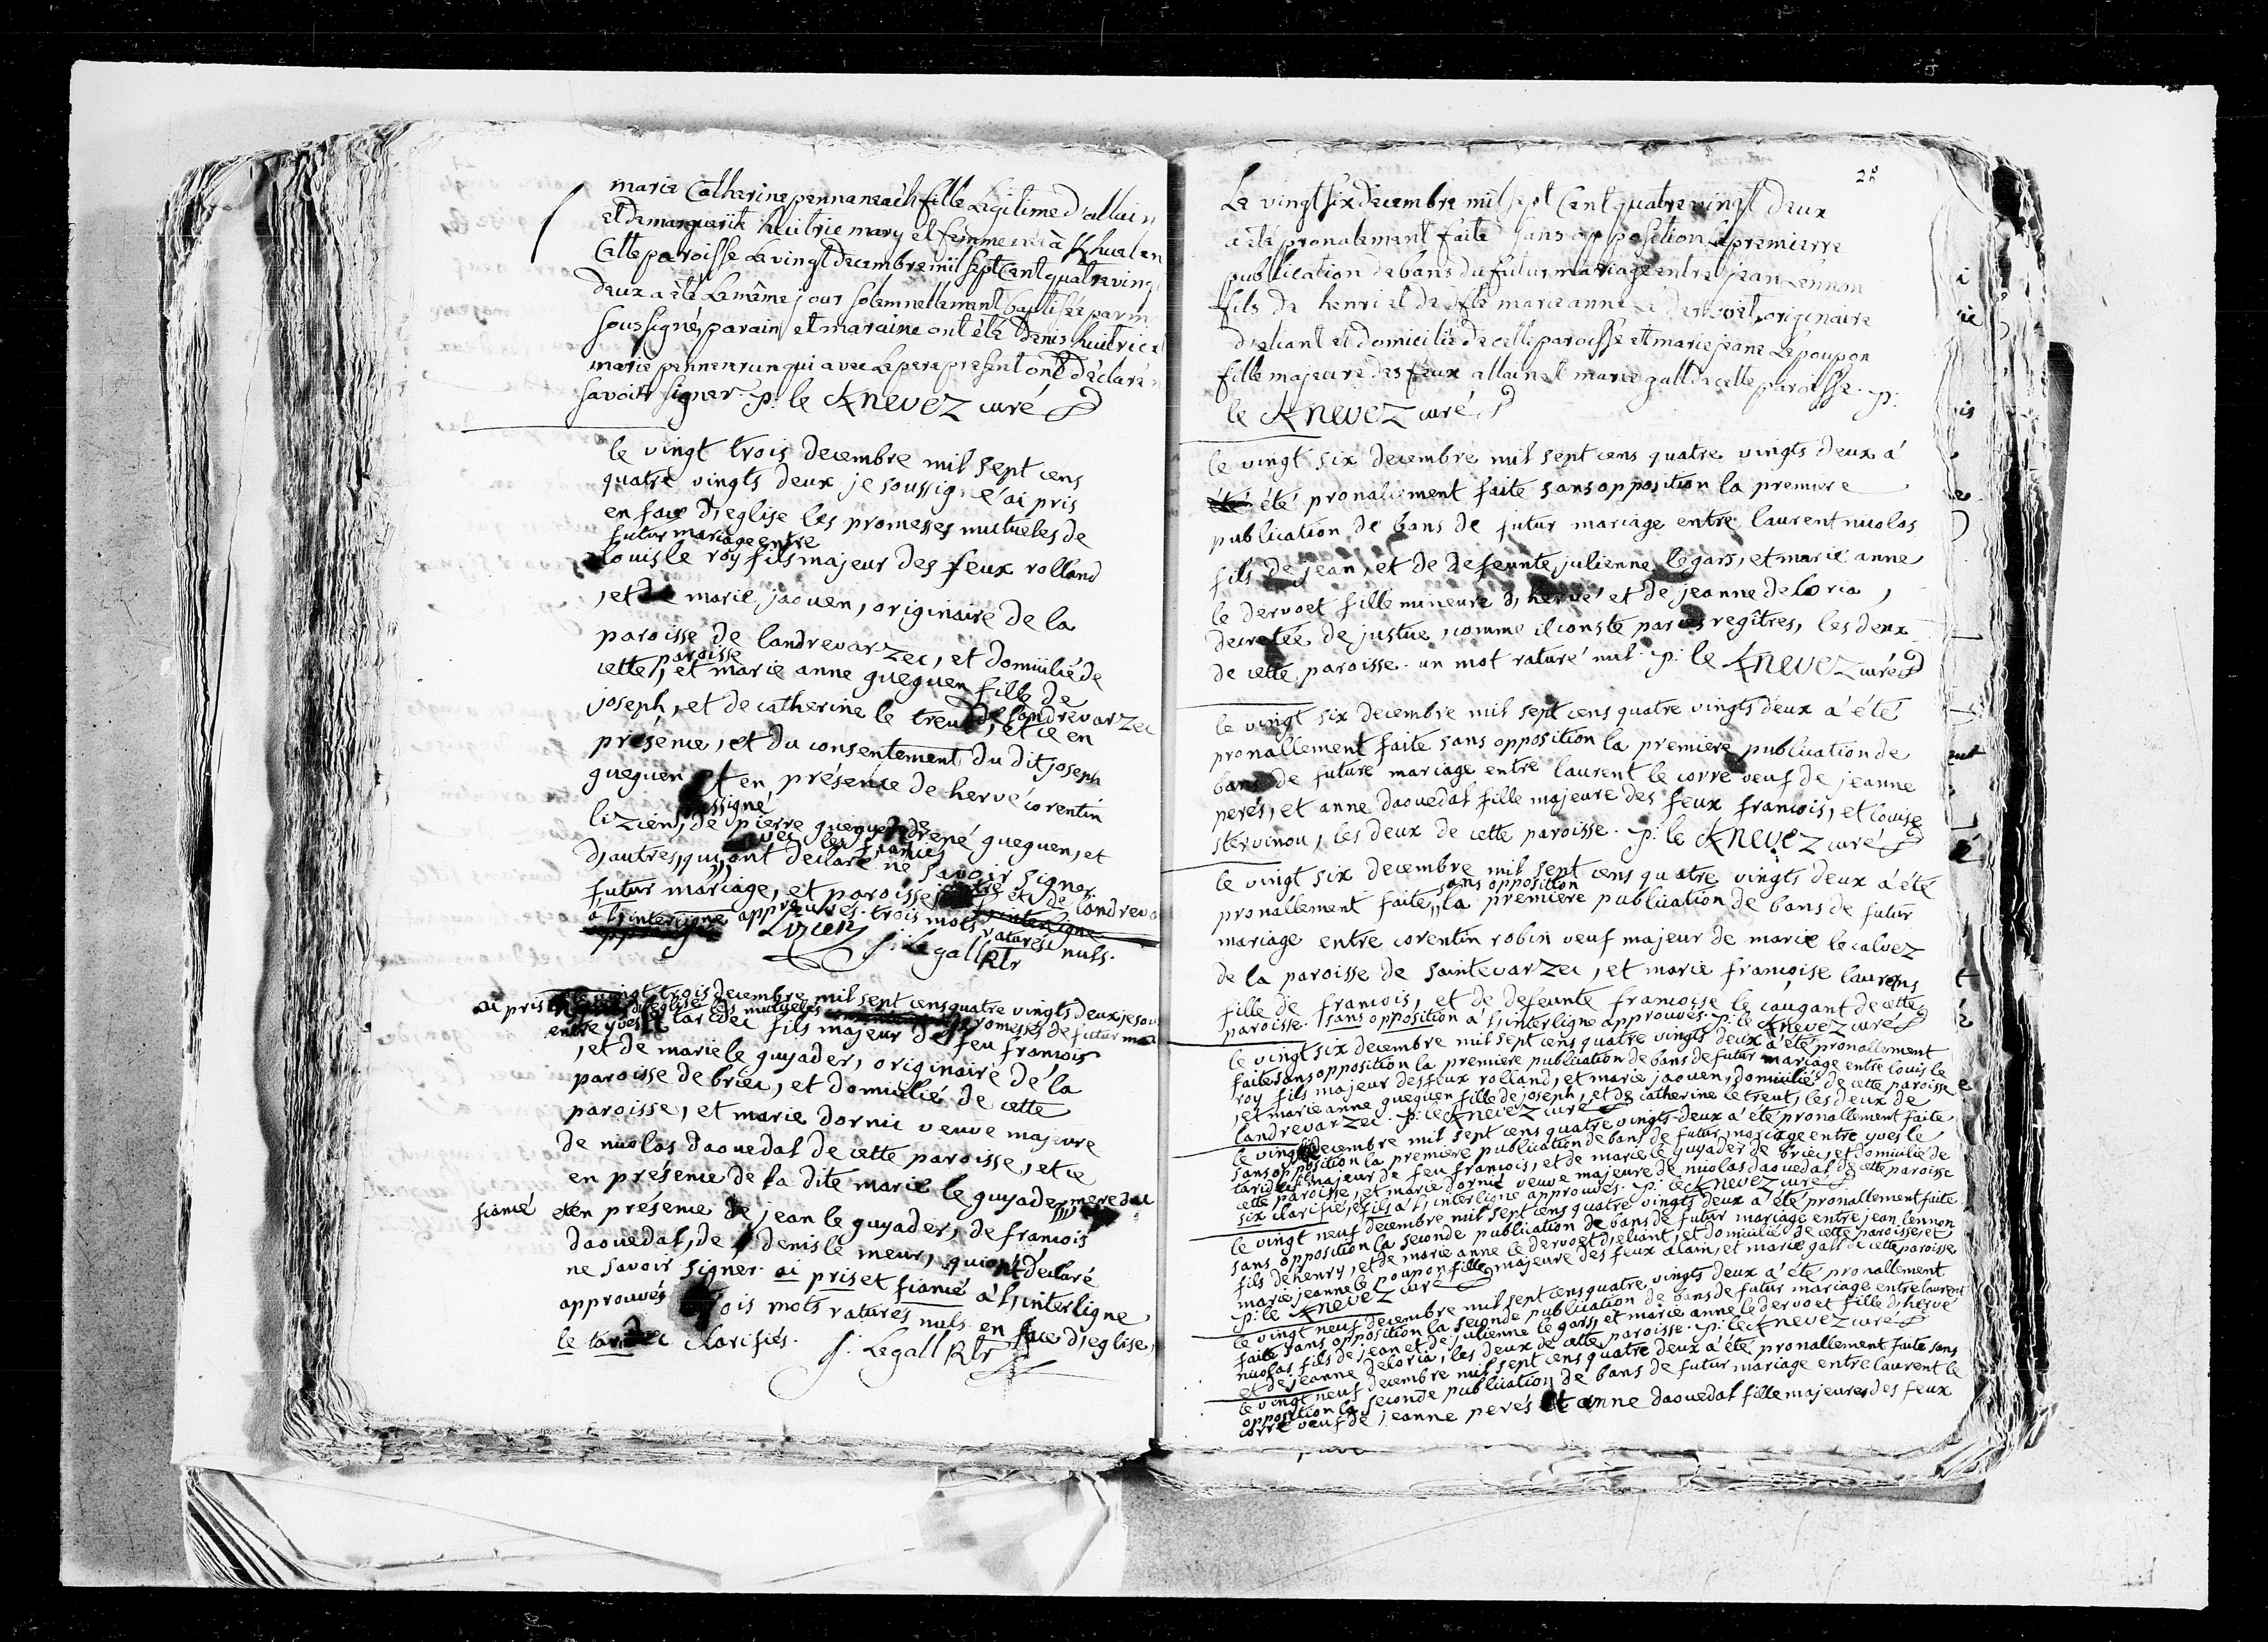 marie Catherine pennaneach fille Légitime d'allain
et de marguerite huitric mary et femme née à Khuelen
Cette paroisse Le vingt decembre mil Sept Cent quatre vingt
deux a été Le même jour Solemnellement baptisée par m
Soussigné, parain et maraine ont été denis huitric et
marie pennenrun qui avec Le pere present ont déclaré n
savoir signer. p: le Knevez curé
le vingt trois decembre mil sept cens
quatre vingts deux je soussigné ai pris
en face d'eglise les promesses mutueles de
futur mariage entre
louis le roy fils majeur des feux rolland
, et de marie jaouen, originaire de la
paroisse de landrevarzec, et domicilié de
paroisse
cette, et marie anne gueguen fille de
joseph, et de catherine le treut, de landrevarzec
et ce en
présence, et du consentement du dit joseph
gueguen et en présence de hervé corentin
ssigné
lizien, de pierre gueguen de rené gueguen, et
avec les fiancés
d'autres, qui ont declaré ne savoir signer.
futur mariage, et paroisse de landreva
à l'interligne approuvés. trois mots raturés nuls.
Lizien
j: Legall Rtr
ai pris
le vingt trois decembre mil sept cens quatre vingts deux je sou
d'eglise les mutueles promesses de futur ma
entre yves le taridec fils majeur de feu francois
, et de marie le guyader, originaire de la
paroisse de briec, et domicilié de cette
paroisse, et marie dornic veuve majeure
de nicolas daouedal de cette paroisse, et ce
en présence de la dite marie le guyader, mere du
fiancé et en présence de jean le guyader, de francois
daouedal, de denis le meur, qui ont declaré
ne savoir signer. ai pris et fiancé à l'interligne
approuvés trois mots raturés nuls. en face d'eglise,
le taridec clarifiés. j: Legall Rtr
28
Le vingt Six decembre mil Sept Cent quatre vingt deux
a été pronalement faite Sans opposition la premierre
publication de bans du futur mariage entre jean Lennon
fils de henri et de dfte marie anne Le dervoet, originaire
d'eliant et domicilié de cette paroisse et marie jeane Le poupon
fille majeure des feux allain et marie gall de cette paroisse. p:
le Knevez curé
le vingt six decembre mil sept cens quatre vingts deux a
été été pronallement faite sans opposition la premiere
publication de bans de futur mariage entre laurent nicolas
fils de jean, et de defeunte julienne le gars, et marie anne
le dervoet fille mineure d'hervé et de jeanne deloria,
decretée de justice, comme il conste par ces regîtres, les deux
de cette paroisse. un mot raturé nul. p: le Knevez curé
le vingt six decembre mil sept cens quatre vingts deux a été
pronallement faite sans opposition la premiere publication de
bans de future mariage entre laurent le corre veuf de jeanne
perés, et anne daouedal fille majeure des feux francois, et louise
stervinou, les deux de cette paroisse. p: le Knevez curé
le vingt six decembre mil sept cens quatre vingts deux a été
sans opposition
pronallement faite la premiere publication de bans de futur
mariage entre corentin robin veuf majeur de marie le calvez
de la paroisse de saintevarzec, et marie francoise laurens
fille de francois, et de defeunte francoise le caugant de cette
paroisse. sans opposition à l'interligne approuvés. p: le Knevez curé
le vingt six decembre mil sept cens quatre vingts deux a été pronallement
faite sans opposition la premiere publication de bans de futur mariage entre louis le
roy fils majeur des feux rolland, et marie jaouen, domicilié de cette paroisse
, et marie anne gueguen fille de joseph, et de catherine le treut, les deux de
landrevarzec. p: le Knevez curé
le vingt decembre mil sept cens quatre vingts deux a été pronallement faite
sans opposition la premiere publication de bans de futur mariage entre yves le
taridec majeur de feu francois, et de marie le guyader de briec, et domicilié de
cette paroisse, et marie dornic veuve majeure de nicolas daouedal de cette paroisse
six clarifié, et fils à l'interligne approuvés. p: le Knevez curé
le vingt neuf decembre mil sept cens quatre vingts deux a été pronallement faite
sans opposition la seconde publication de bans de futur mariage entre jean lennon
fils de henry, et de marie anne le dervoet d'eliant, et domicilié de cette paroisse, et
marie jeanne le poupon fille majeure des feux alain, et marie gall de cette paroisse
p: le Knevez curé
le vingt neuf decembre mil sept cens quatre vingts deux a été pronallement
faite sans opposition la seconde publication de bans de futur mariage entre laurent
nicolas fils de jean et de julienne le gars, et marie anne le dervoet fille d'hervé
et de jeanne deloria, les deux de cette paroisse. p: le Knevez curé
le vingt neuf decembre mil sept cens quatre deux a été pronallement faite sans
opposition la seconde publication de bans de futur mariage entre laurent le
corre veuf de jeanne perés et anne daouedal fille majeure des feux